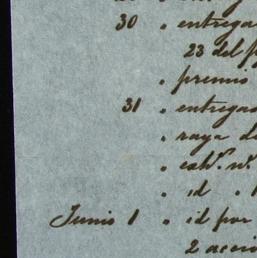 30 " entrega
23 del p
" premio
31 " entregad
" raya de
" id "
Junio 1 " id por
2 acci